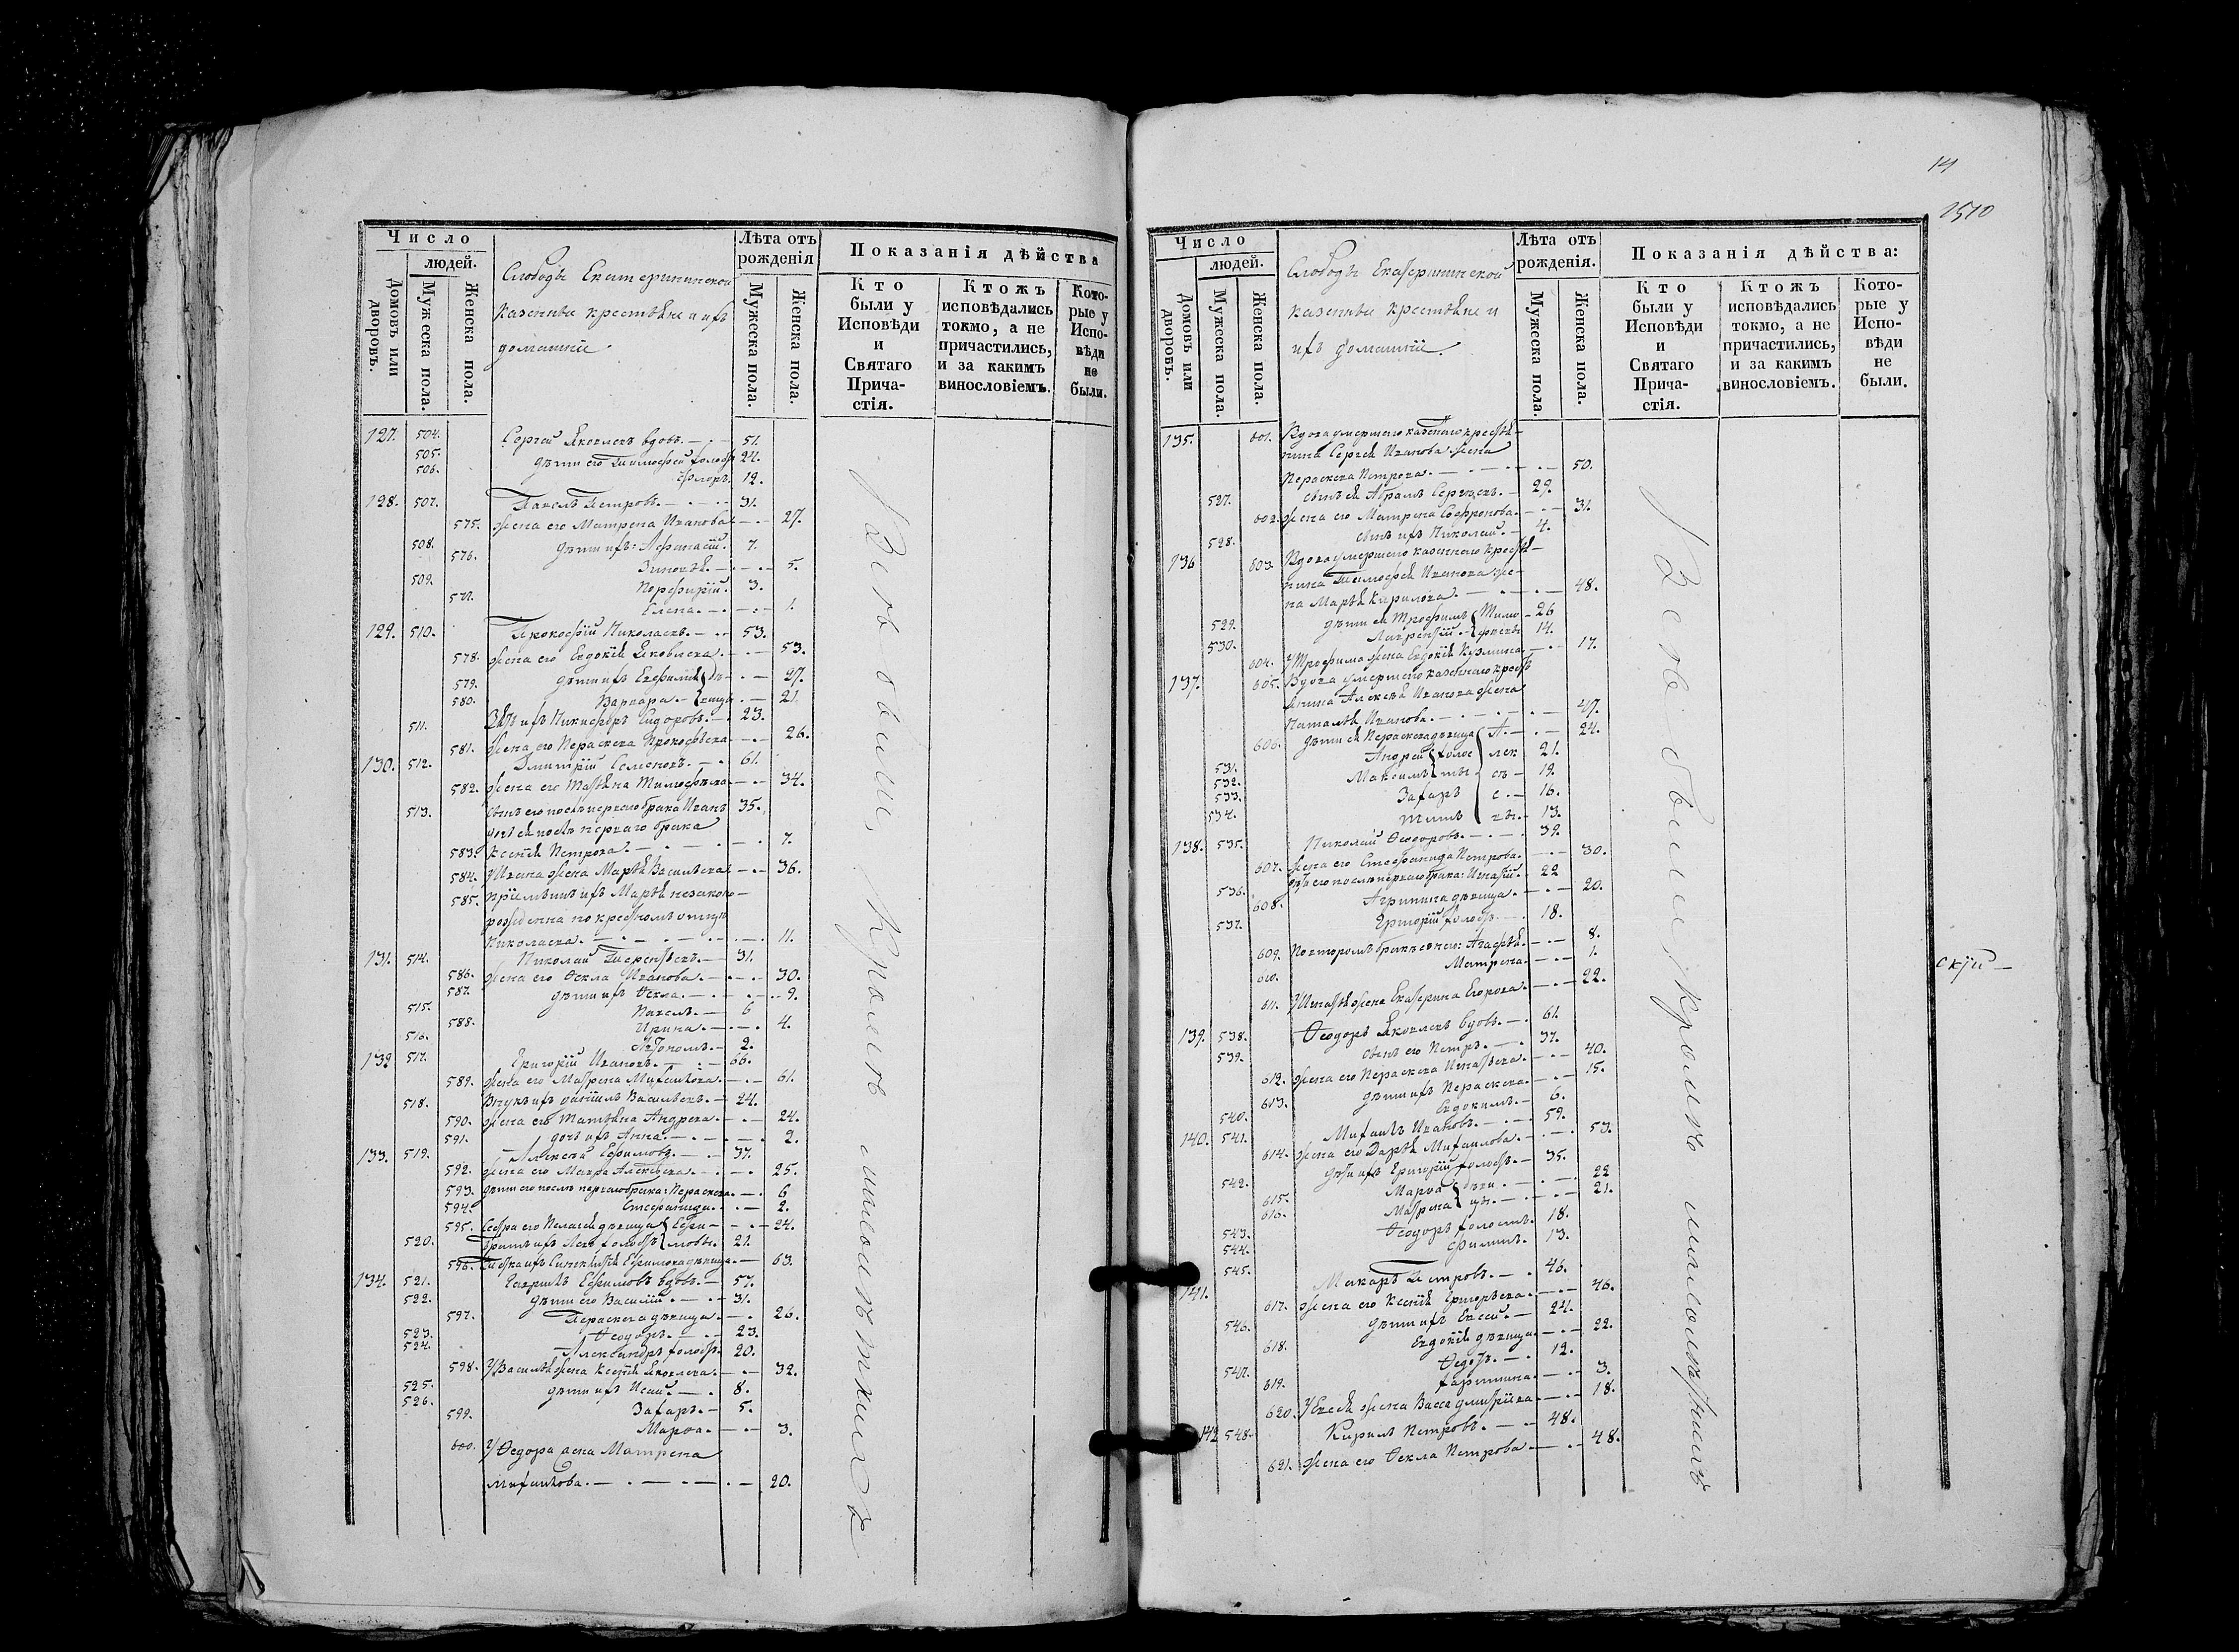 Число
людей.
Домовъ или дворовъ.
Мужеска пола.
Женска пола.
Слободы Екатерининской
казенные крестьяне и ихъ
домашніе
Лѣта отъ
рожденія
Мужеска пола.
Женска пола.
Показанія дѣйства
Кто
были у
Исповѣди
и
Святаго
Прича-
стія.
Ктожъ
исповѣдались
токмо, а не
причастились,
и за какимъ
винословіемъ.
Кото-
рые у
Испо-
вѣди
не
были.
127. 504. Сергей Яковлевъ вдовъ. 51.
505. дѣти его Тимофей холостъ 24.
506. Флоръ. 12.
128. 507. Павелъ Петровъ. 31.
575. жена его Матрена Иванова 27.
508. дѣти ихъ: Афанасій. 7.
576. Зиновья. 5.
509. Порфирій. 3.
577. Елена. 1.
129. 510. Прокофій Николаевъ. 53.
578. жена его Евдокія Яковлева. 53.
579. дѣти ихъ Евфимія дѣ- 27.
580. Варвара. вицы 21
511. Зять ихъ Никифоръ Сидоровъ. 23.
581. жена его Параскева Прокофьева 26.
130. 512. Дмитрій Семеновъ. 61.
582. жена его Татьяна Тимофеева 34.
513. сынъ его послѣ перваго брака Иванъ 35.
дочь ея послѣ перваго брака
583. Ксенія Петрова. 7.
584. У Ивана жена Марья Васильева 36.
585. Пріемышъ ихъ Марья незаконо-
рожденна по крестномъ отцѣ
Николаева. 11.
131. 514. Николай Терентьевъ. 31.
586. жена его Ѳекла Иванова. 30.
587. дѣти ихъ Ѳекла. 9.
515. Павелъ. 6
588. Ирина. 4.
516. Артомонъ. 2.
132 517. Григорій Ивановъ. 66.
589. жена его Матрена Михайлова. 61.
518. Внукъ ихъ Данiилъ Васильевъ. 24.
590. жена его Татьяна Андреева. 24.
591. дочь ихъ Анна. 2.
133. 519. Алексѣй Ефимовъ. 37.
592. жена его Мавра Алексѣева. 25.
593. дѣти его послѣ перваго брака: Параскева. 6
594. Стефанида. 2.
595. Сестра его Пелагея дѣвица Ефи- 24.
520. братъ ихъ Левъ холостъ мовы. 21.
596. Тетка ихъ Синклитія Ефимова дѣвица. 63.
134. 521. Гавріилъ Ефимовъ вдовъ. 57.
522. дѣти его Василій. 31.
597. Параскева дѣвица. 26.
523. Ѳеодоръ. 23.
524. Александръ холостъ. 20.
598. У Василья жена Ксенія Яковлева. 32.
525. дѣти ихъ Исай. 8.
526. Захаръ. 5.
599. Марѳа. 3.
600. У Ѳедора жена Матрена
Михайлова. 20.
Всѣ были, кромѣ
14
1510
Число
людей.
Домовъ или дворовъ.
Мужеска пола.
Женска пола.
Слободы Екатерининской
казенные крестьяне и
ихъ домашніе.
Лѣта отъ
рожденія.
Мужеска пола.
Женска пола.
Показанія дѣйства:
Кто
были у
Исповѣди
и
Святаго
Прича-
стія.
Ктожъ
исповѣдались
токмо, а не
причастились,
и за какимъ
винословіемъ.
Кото-
рые у
Испо-
вѣди
не
были.
135. 601. Вдова умершаго казеннаго крестья-
нина Сергея Иванова жена
Параскева Петрова. 50.
527. сынъ ея Абрамъ Сергеевъ. 29.
602. жена его Матрена Софронова. 31.
528. сынъ ихъ Николай. 4.
136 603. Вдова умершаго казеннаго крестья-
нина Тимофея Иванова же-
на Марья Кирилова. 48.
529. дѣти ея Трофимъ Тимо- 26
530. Лаврентій. феевы 14.
604. У Трофима жена Евдокія Кузмина 17.
137. 605. Вдова умершаго казеннаго кресть
янина Алексѣя Иванова жена
Наталья Иванова. 47.
606. дѣти ея Параскева дѣвица А. 24.
531. Андрей холос лек 21.
532. Максимъ ты сѣ 19.
533. Захаръ е. 16.
534. Титъ вы. 13.
138. 535. Николай Ѳеодоровъ. 39.
607. жена его Стефанида Петрова. 30.
536. дѣти его послѣ перваго брака: Игнатій. 22
608. Агрипина дѣвица. 20.
537. Григорій холостъ. 18.
609. По второмъ бракѣ съ нею: Агафья. 8.
610. Матрена. 1.
611. У Игнатья жена Екатерина Егорова. 22.
139. 538. Ѳеодоръ Яковлевъ вдовъ. 61.
539. сынъ его Петръ. 37.
612. жена его Параскева Игнатьева. 40.
613. дѣти ихъ Параскева. 15.
540. Евдокимъ. 6.
140. 541. Михаилъ Ивановъ. 59.
614. жена его Дарья Михайлова. 53.
542. дѣти ихъ Григорій холостъ. 35.
615. Марѳа дѣви 22
616. Матрена цы. 21.
543. Ѳеодоръ холостъ. 18.
544. Филипъ. 13.
141. 545. Макаръ Петровъ. 46.
617. жена его Ксенія Григорьева. 46.
546. дѣти ихъ Евсей. 24.
618. Евдокія дѣвица. 22.
547. Ѳедотъ. 12.
619. Харитина. 3.
620. У Евсея жена Васса Дмитріева 18.
142 548. Кирилъ Петровъ. 48.
621. жена его Ѳекла Петрова 48.
Всѣ были, кромѣ
скій